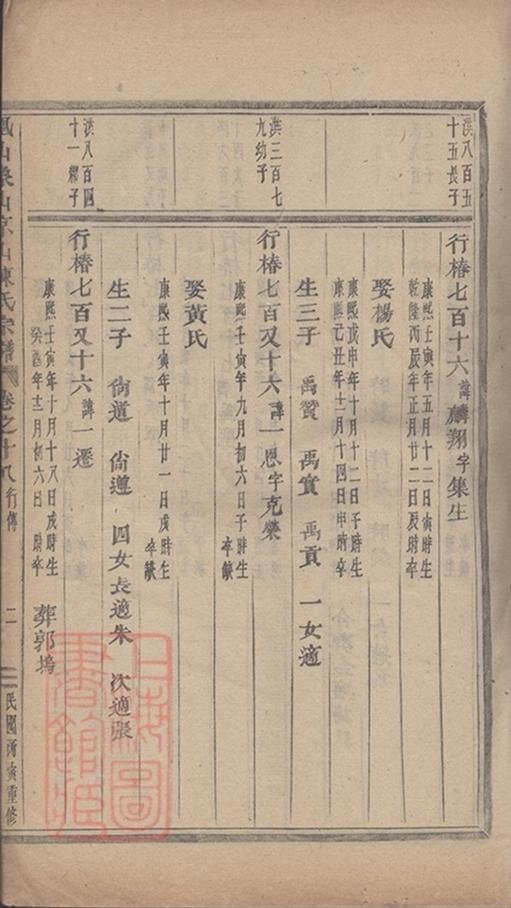 洪八百五
十五長子
行椿七百十六諱麟翔字集生
康熙壬寅年五月十二日寅時生
乾隆丙辰年正月廿二日辰時卒
娶楊氏
康熙戊申年十月十二日子時生
康熙己丑年十二月十四日申時卒
生三子 禹贊 禹實 禹貢 一女適
洪三百七
九幼子
行椿七百又十六諱一恩字克榮
康熙壬寅年九月初六日子時生
卒缺
娶黃氏
康熙壬寅年十月廿一日戌時生
卒缺
生二子 尙道 尙遵 四女長適朱 次適張
洪八百四
十一繼子
行椿七百又十六諱一遷
康熙壬寅年十月十八日戌時生
癸酉年十二月初六日 時卒
葬郭塢
山陳氏宗譜 卷之十八 行傳 二 民國丙寅重修
上海圖書館藏